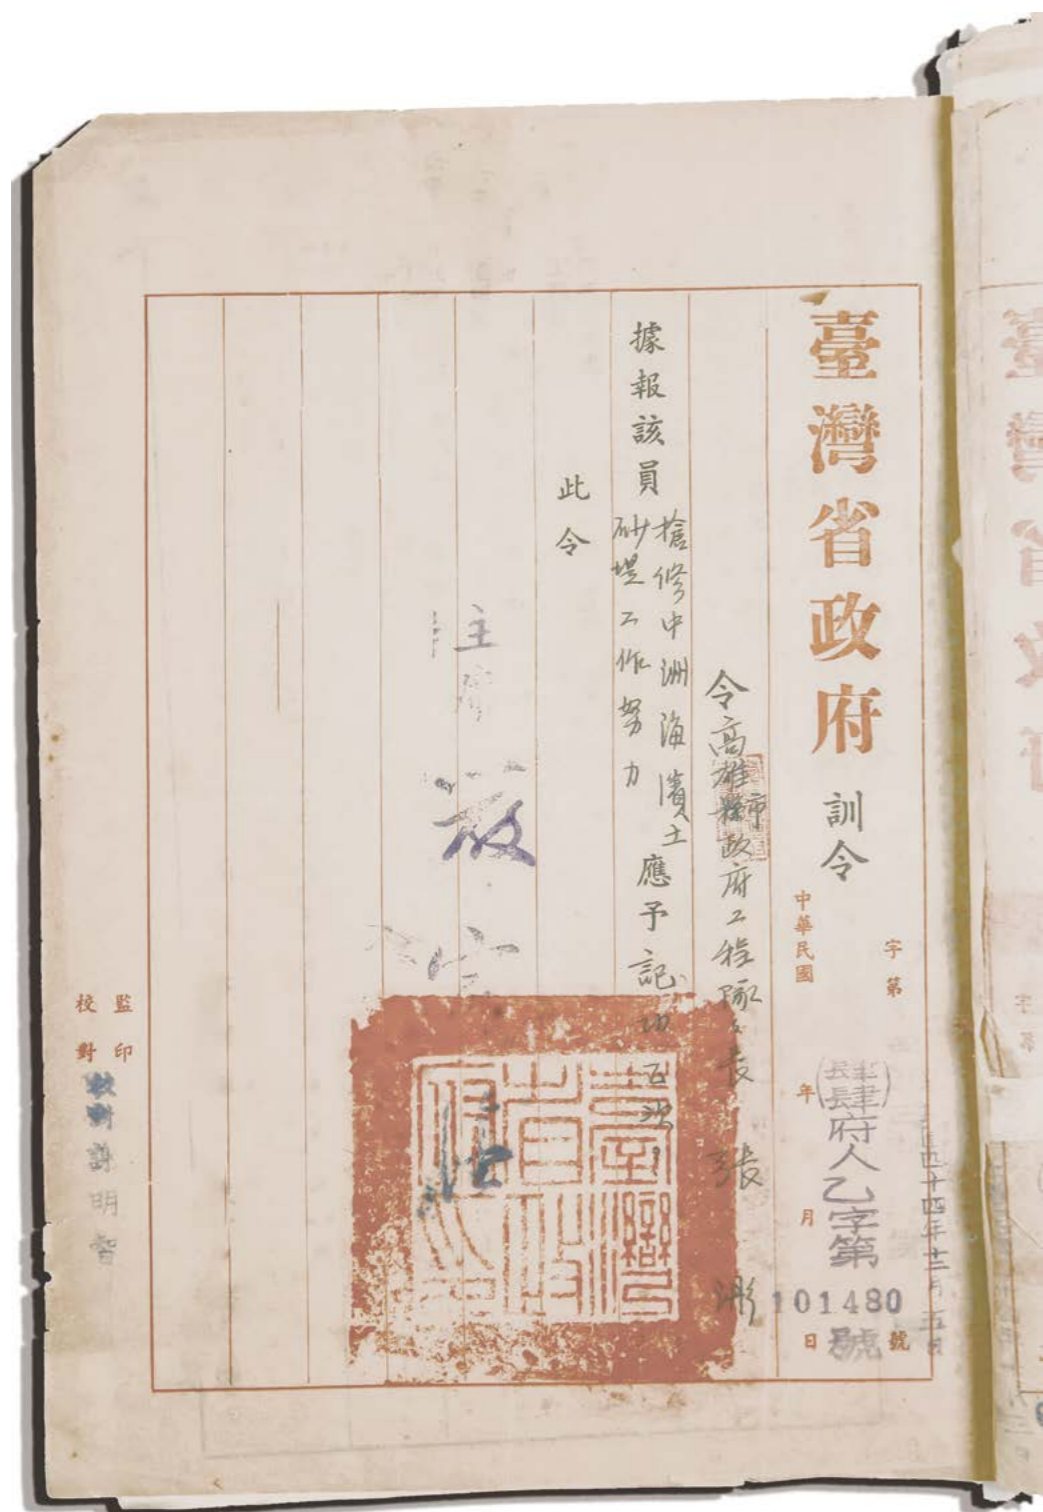 臺灣省政府訓令
字第 號
中華民國 年 月 日
(肆肆)府人乙字第
101480
號
四十四年十二月
令高雄市政府工程隊隊長張
據報該員搶修中洲海濱土
砂堤工作努力
應予記功
此令
主席
臺灣省政府
監印
校對
校對 許明智